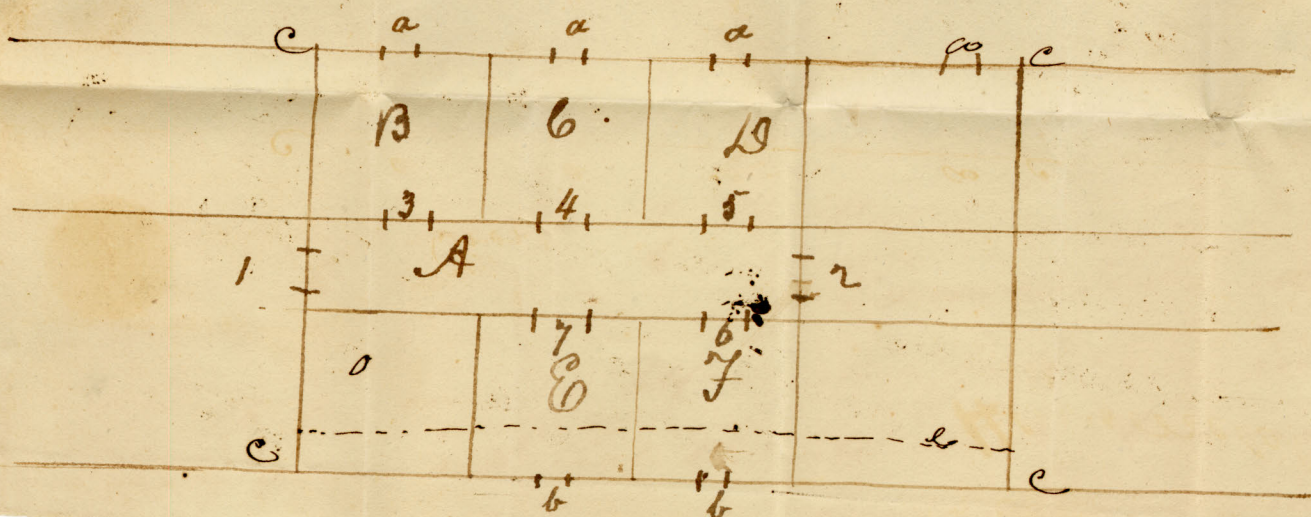 C a a a C
B C. D
3 4 5
1 A 2
7 6
o E F
C C
b b